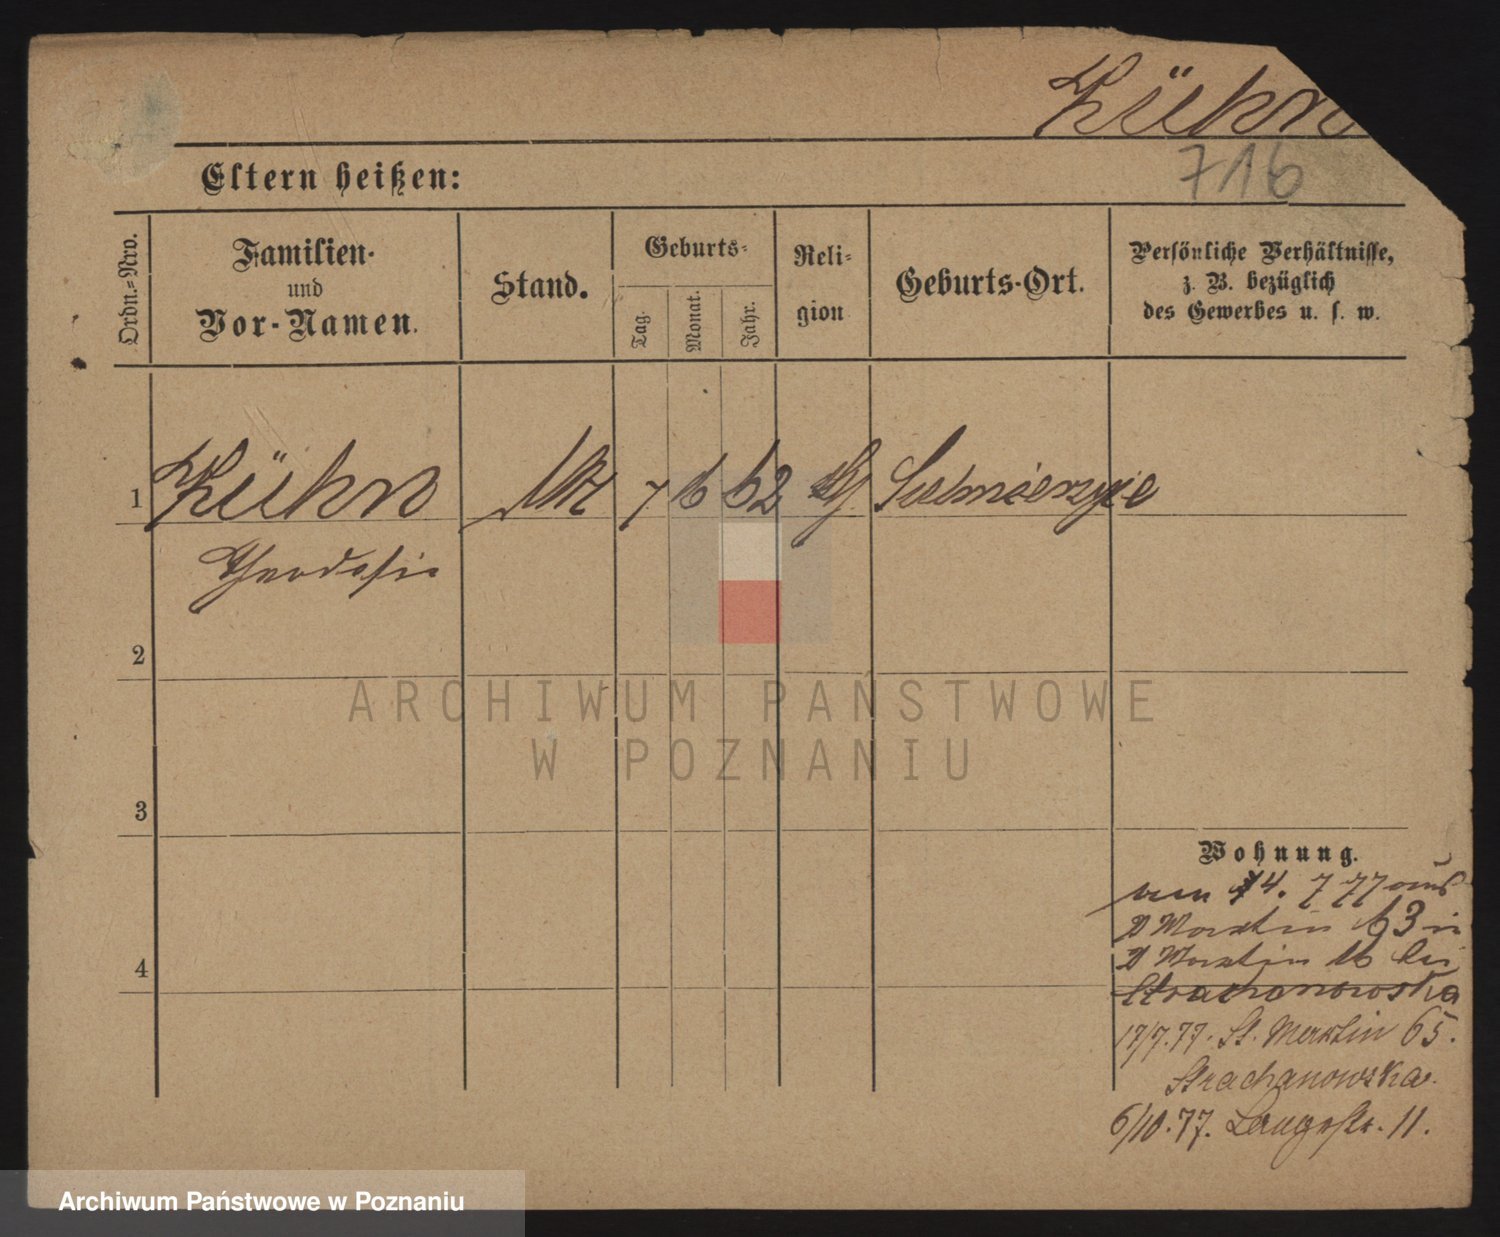 Kühn
716
Eltern heißen:
Ordn.-Nro.
Familien-
und
Vor-Namen.
Stand.
Geburts-
Tag.
Monat.
Jahr.
Reli-
gion
Geburts-Ort.
Persönliche Verhältnisse,
z. B. bezüglich
des Gewerbes u. s. w.
1 Kühn 7 6 62 Sulmierzyce
Theodosia
2
3
4
Wohnung.
am 14. 7 77 aus
St Martin 63 in
St Martin 16 bei
Strachanowska
17/7.77. St. Martin 65.
Strachanowska.
6/10.77. Langestr. 11.
ARCHIWUM PAŃSTWOWE
W POZNANIU
Archiwum Państwowe w Poznaniu